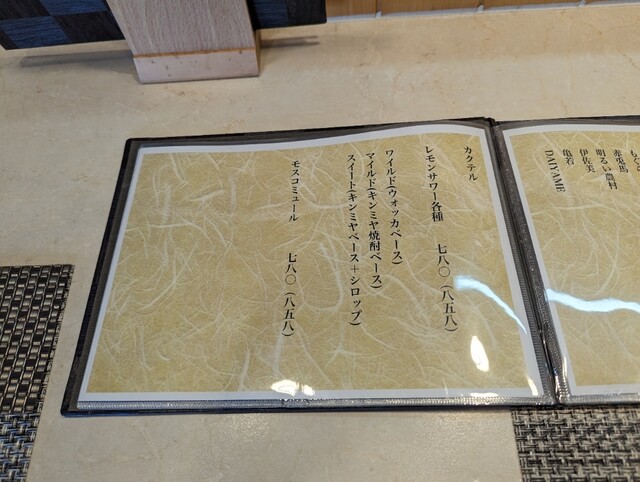 赤兎馬
明るい農村
伊佐美
亀若
DAIYAME
カクテル
レモンサワー各種 七八〇(八五八)
ワイルド(ウォッカベース)
マイルド(キンミヤ焼酎ベース)
スイート(キンミヤベース+シロップ)
モスコミュール 七八〇(八五八)